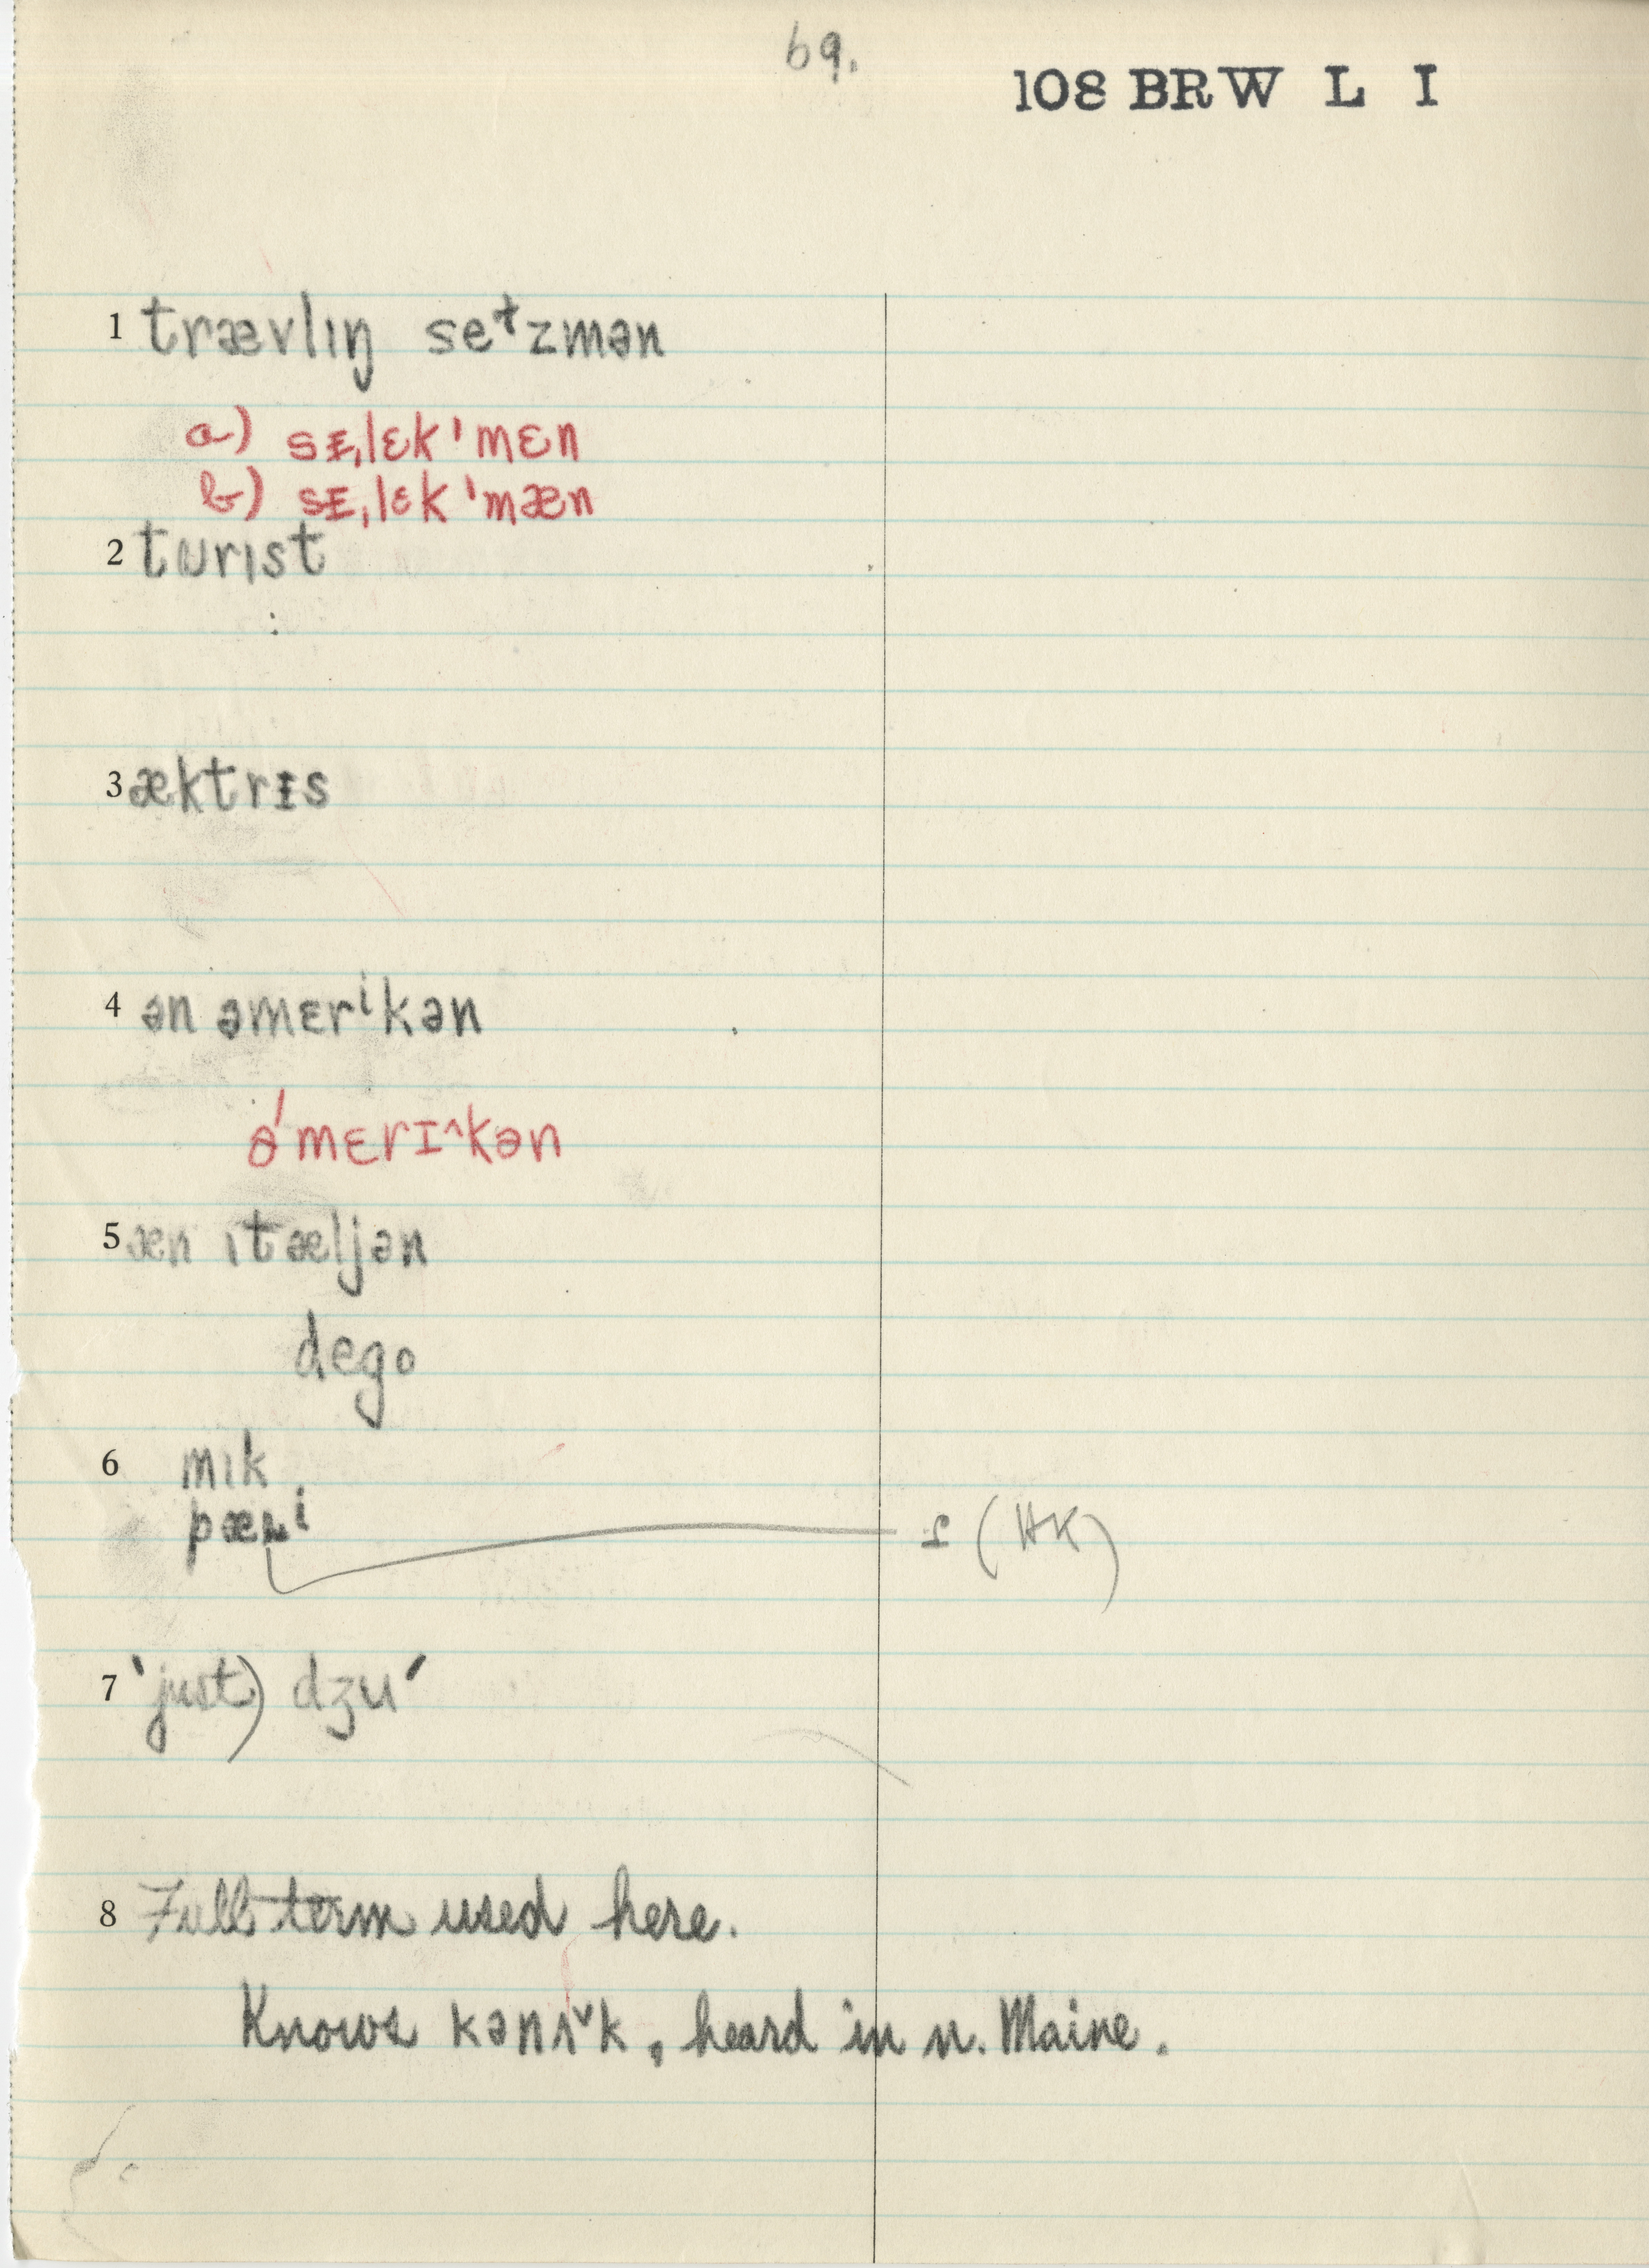 69.
108 BRW L I
1 trævlıŋ seɫzmən
a) sᵻˌlɛkˈmɛn
b) sᵻˌlɛkˈmæn
2 tᴜrıst
3 æktrᵻs
4 ən əmɛrⁱkən
əˈmɛrɪ^kən
5 æn ıtæljən
dego
6 mık
s (HK)
7 'just) dʒu'
8 Full term used here.
Knows kənʌˇk, heard in n. Maine.